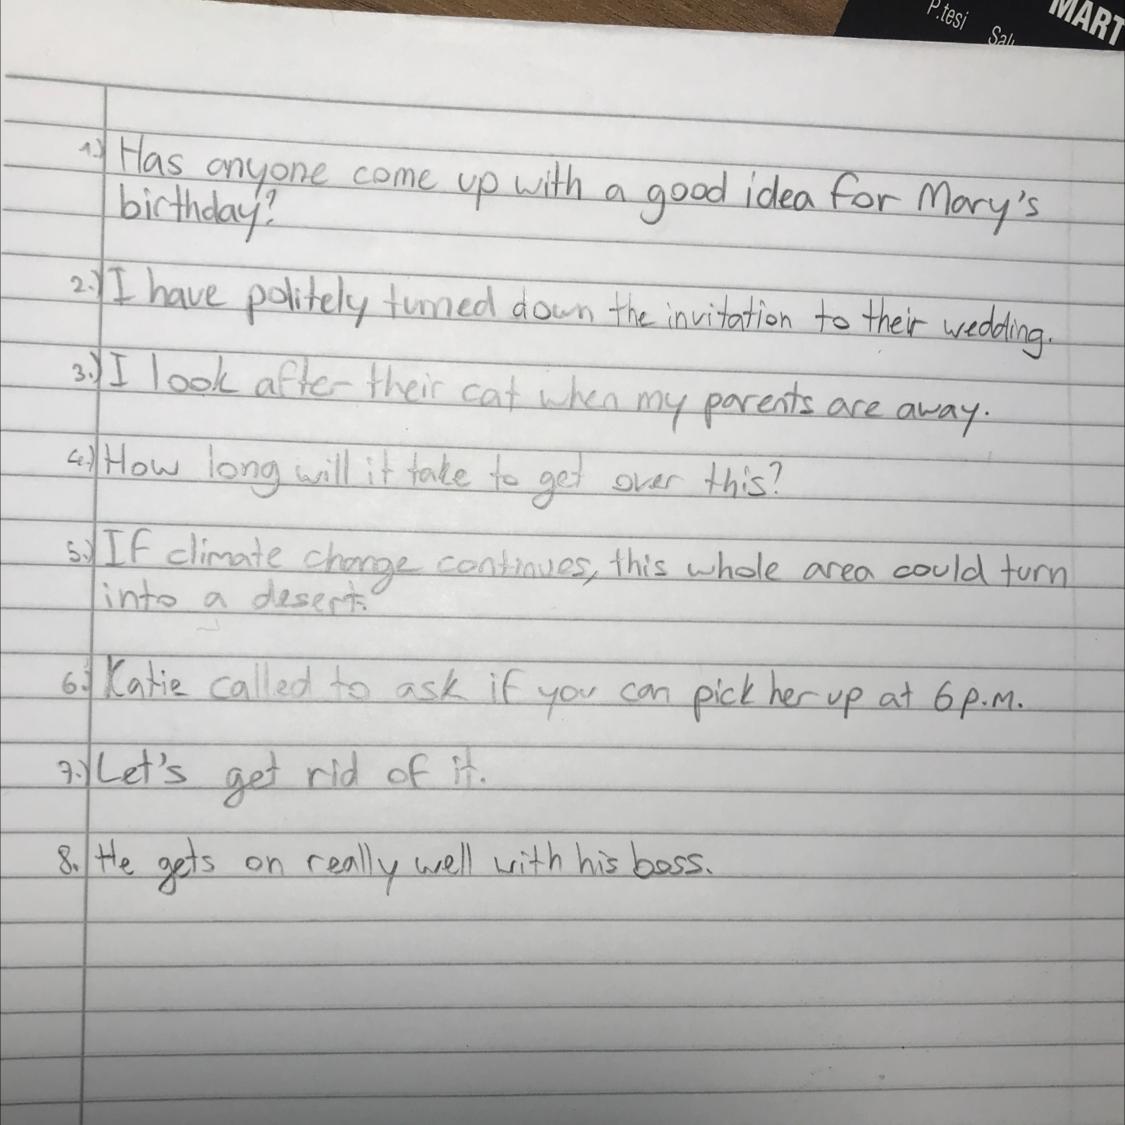 P.tesi
Salı
MART
1.) Has anyone come up with a good idea for Mary's
birthday?
2.) I have politely turned down the invitation to their wedding.
3.) I look after their cat when my parents are away.
4.) How long will it take to get over this?
5.) If climate change continues, this whole area could turn
into a desert.
6.) Katie called to ask if you can pick her up at 6 p.m.
7.) Let's get rid of it.
8. He gets on really well with his boss.